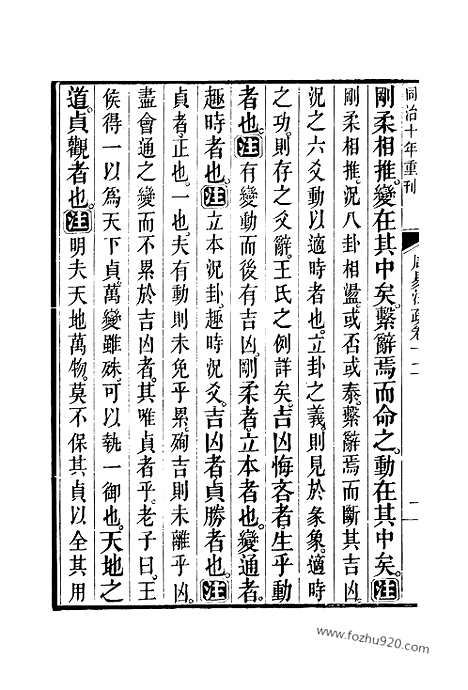 同治十年重刊
周易注疏卷十二
剛柔相推。變在其中矣。繫辭焉而命之。動在其中矣。注
剛柔相推。況八卦相盪。或否或泰。繫辭焉而斷其吉凶。
況之六爻。動以適時者也。立卦之義。則見於彖象。適時
之功。則存之爻辭。王氏之例詳矣。吉凶悔吝者。生乎動
者也。注有變動而後有吉凶。剛柔者。立本者也。變通者。
趣時者也。注立本況卦。趣時況爻。吉凶者。貞勝者也。注
貞者。正也。一也。夫有動則未免乎累。殉吉則未離乎凶。
盡會通之變而不累於吉凶者。其唯貞者乎。老子曰。王
侯得一以爲天下貞。萬變雖殊。可以執一御也。天地之
道。貞觀者也。注明夫天地萬物。莫不保其貞以全其用
www.fozhu920.com